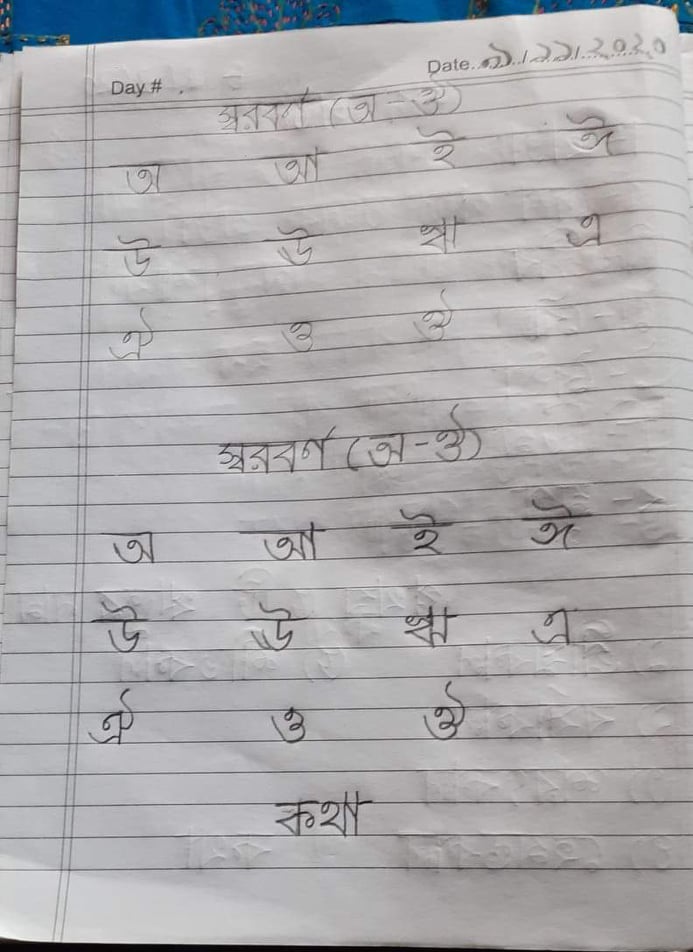 Day #
Date.
স্বরবর্ণ (অ-ঔ)
অ আ ই ঈ
উ ঊ ঋ এ
ঐ ও ঔ
স্বরবর্ণ (অ-ঔ)
অ আ ই ঈ
উ ঊ ঋ এ
ঐ ও ঔ
কথা